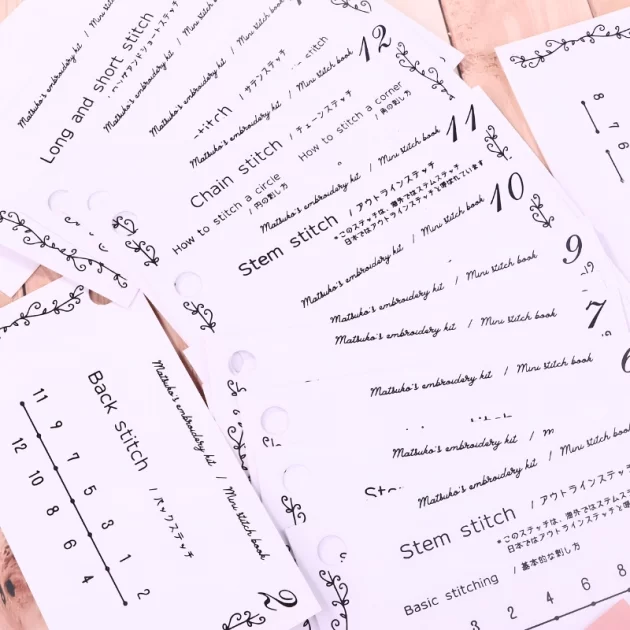 Matsuko's embroidery kit / Mini stitch book
Long and short stitch
/ ロングアンドショートステッチ
Matsuko's embroidery kit
Matsuko's embroidery kit
/ サテンステッチ
Matsuko's embroidery kit / Mini stitch book
12
Chain stitch / チェーンステッチ
How to stitch a circle
/ 円の刺し方
How to stitch a corner
/ 角の刺し方
Matsuko's embroidery kit / Mini stitch book
11
Stem stitch / アウトラインステッチ
*このステッチは、海外ではステムステッチ
日本ではアウトラインステッチと呼ばれています
Matsuko's embroidery kit / Mini stitch book
10
Matsuko's embroidery kit / Mini stitch book
9
Matsuko's embroidery kit / Mini stitch book
7
Matsuko's embroidery kit / Mini stitch book
6
Matsuko's embroidery kit /
Matsuko's embroidery kit / Mini stitch book
Stem stitch / アウトラインステッチ
*このステッチは、海外ではステムス
日本ではアウトラインステッチと
Basic stitching / 基本的な刺し方
2 4 6 8
3
Matsuko's embroidery kit / Mini stitch book
2
Back stitch / バックステッチ
11 9 7 5 3 1
12 10 8 6 4 2
8
6
7